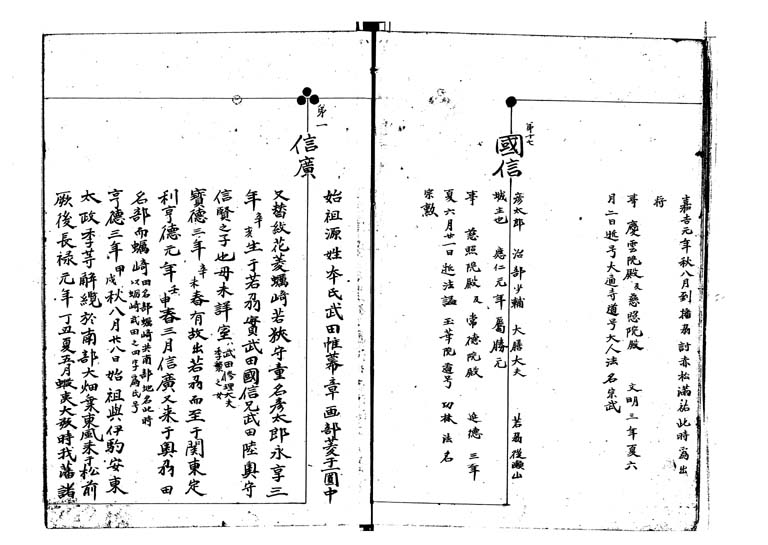 嘉吉元年秋八月到播刕討赤松滿祐此時為出
将
事 慶雲院殿及慈照院殿 文明三年夏六
月二日逝号大通寺道号大人法名宗武
第十七
國信
彦太郎 治部少輔 大膳大夫 若刕後瀬山
城主也 應仁元年屬勝元
事 慈照院殿及常德院殿 延德三年
夏六月廿一日逝法諡玉華院道号功林法名
宗勲
第一
信廣
始祖源姓本氏武田帷幕章画部菱于圓中
又替紋花菱蠣崎若狹守童名彦太郎永享三
年辛亥生于若刕實武田國信兄武田陸奥守
信賢之子也母未詳室武田修理大夫季繁之女
寶德三年辛未春有故出若刕而至于関東定
利亨德元年壬申春三月信廣又来于奥刕田
名部而蠣崎田名部蠣崎共南部地名此時以蠣崎武田之四字為氏号
亨德三年甲戌秋八月廿八日始祖與伊駒安東
太政季等解纜於南部大畑乗東風来于松前
厥後長禄元年丁丑夏五月蝦夷大發時我藩諸